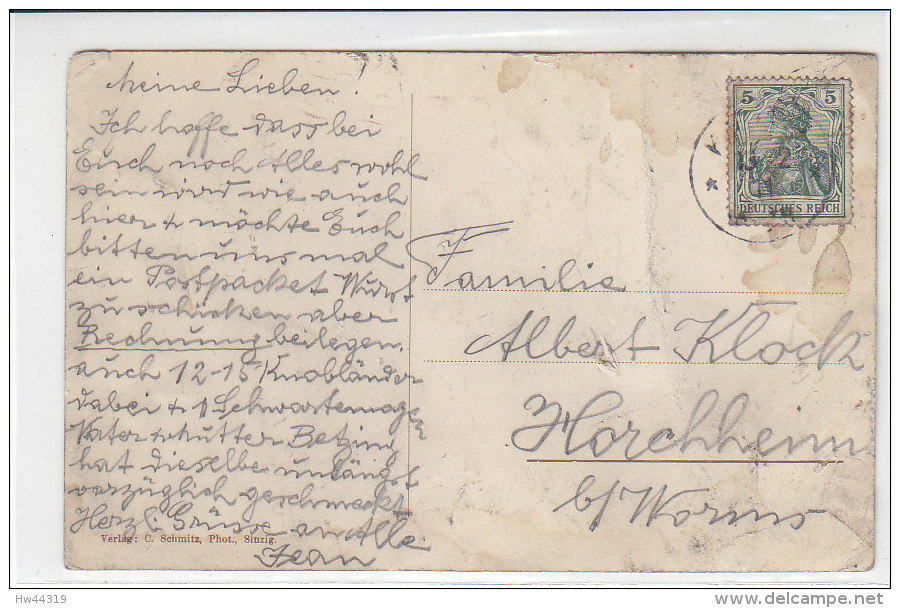 Meine Lieben!
Ich hoffe dass bei
Euch noch Alles wohl
sein wird wie auch
hier & möchte Euch
bitten uns mal
ein Postpacket Wurst
zu schicken aber
Rechnung beilegen.
auch 12-15 Knobländer
dabei & 1 Schwartemagen
Vater & Mutter Betzing
hat dieselbe unlängst
vorzüglich geschmeckt
Herzl. Grüsse an Alle
Jean
Verlag: C. Schmitz, Phot., Sinzig.
5 5
DEUTSCHES REICH
Familie
Albert Klock
Horchheim
b/Worms
Hw44319
delcampe.net